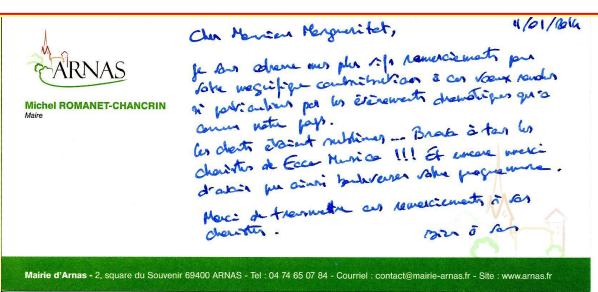 Cher Monsieur Margueritat,
ARNAS
Michel ROMANET-CHANCRIN
Maire
Je vous adresse mes plus vifs remerciements pour
votre magnifique contribution à ces voeux rendus
si particuliers par les évènements dramatiques qu'a
connus notre pays.
Les chants étaient sublimes... Bravo à tous les
choristes de Ecce Musica !!! Et encore merci
d'avoir pu ainsi bouleverser votre programme.
Merci de transmettre ces remerciements à vos
choristes.
Bien à vous
Mairie d'Arnas - 2, square du Souvenir 69400 ARNAS - Tel : 04 74 65 07 84 - Courriel : contact@mairie-arnas.fr - Site : www.arnas.fr